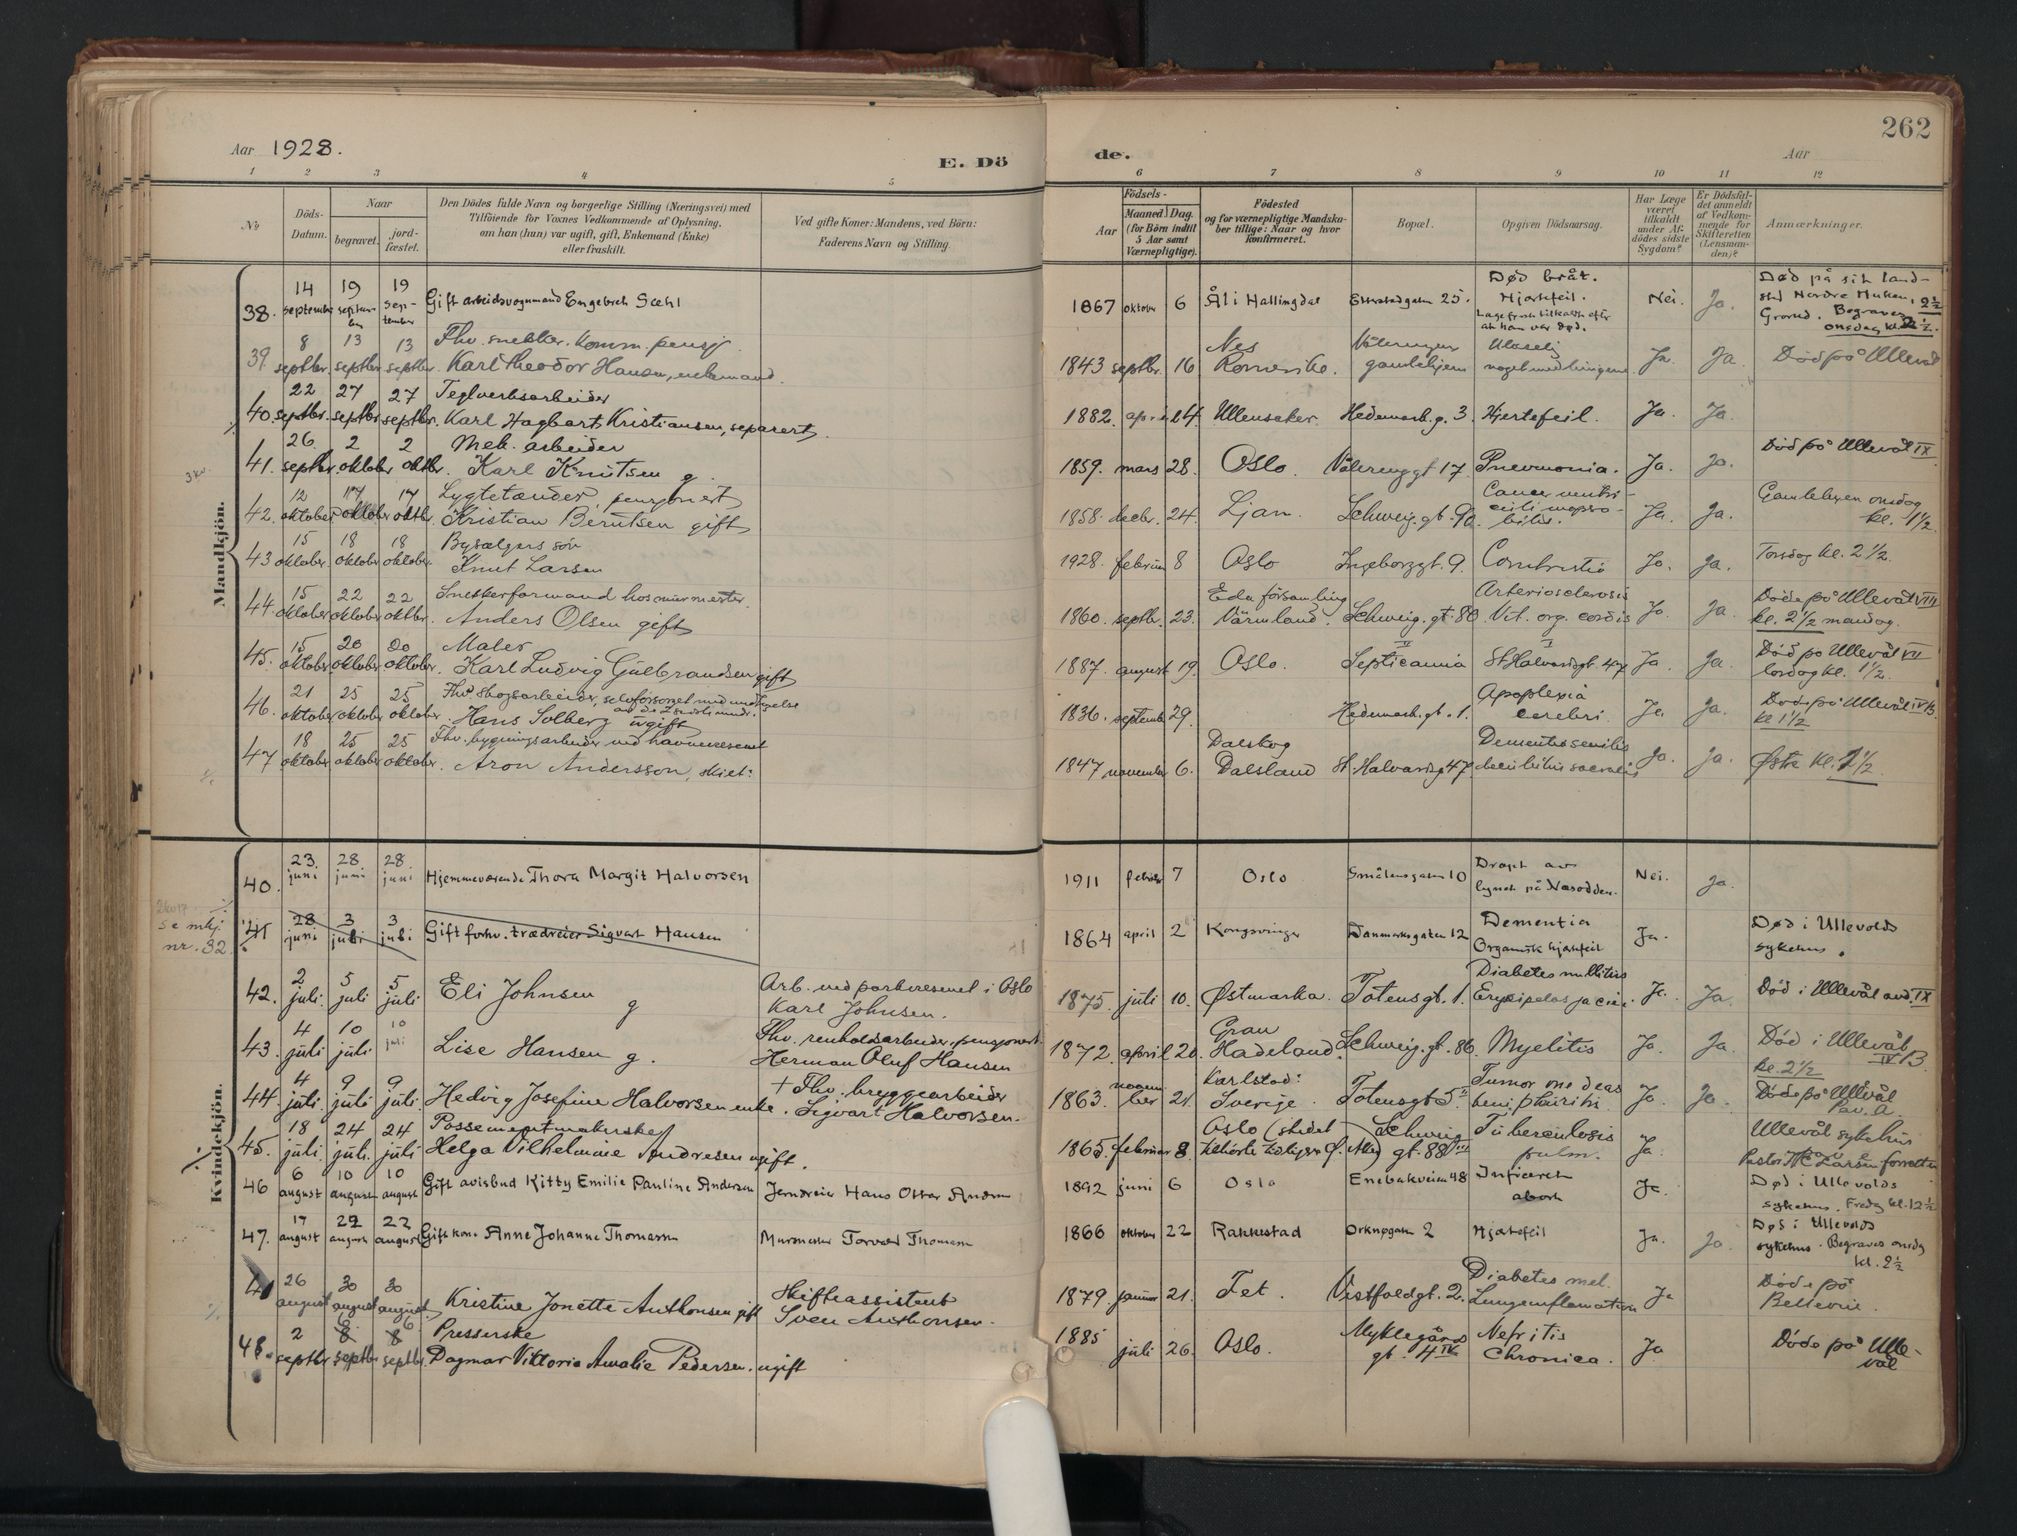 262
Aar 1928.
E. Dö
de.
Aar
1 2 3 4 5 6 7 8 9 10 11 12
No
Döds-
Datum.
Naar
begravet.
jord-
fæstet.
Den Dödes fulde Navn og borgerlige Stilling (Næringsvei) med
Tilföiende för Voxnes Vedkommende af Oplysning,
om han (hun) var ugift, gift, Enkemand (Enke)
eller fraskilt.
Ved gifte Koner: Mandens, ved Börn:
Faderens Navn og Stilling.
Födsels-
Aar
Maaned Dag.
(for Börn indtil
5 Aar samt
Værnepligtige).
Födested
og for værnepligtige Mandska-
ber tillige: Naar og hvor
konfirmeret.
Bopæl.
Opgiven Dödsaarsag.
Har Læge
været
tilkaldt
under Af-
dödes sidste
Sygdom?
Er Dödsfal-
det anmeldt
af Vedkom-
mende for
Skifteretten
(Lensman-
den)?
Anmærkninger.
Mandkjön.
38. 14 september 19 september 19 september Gift arbeidsvognmand Engebret Sæhl 1867 oktober 6 Ål i Hallingdal 25. Død bråt. Hjertefeil. at han var død. Nei. Ja. Død på sit land-
sted Nordre Grorud. Begraves onsdag kl. 2 1/2.
39. 8 septbr. 13 septbr. 13 septbr. Fhv. snekker. komm. pensj.
Karl Theodor Hansen, enkemand. 1843 septbr. 16 Nes Romerike. Vålerengen gamlehjem noget med lungene Ja. Ja. Död på Ullevål
40. 22 septbr. 27 septbr. 27 septbr. Teglverksarbeider
Karl Hagbart Kristiansen, separert. 1882. april 24. Ullensaker. Hedemark. g. 3. Hjertefeil. Ja. Ja.
41. 26 septbr. 2 oktober 2 oktbr. Mek. arbeider
Karl Knutsen g. 1859. mars 28. Oslo. Vålereng gt 17 Pneumonia. Ja. Ja. Död på Ullevål IX
42. 12 oktober 17 oktober 17 oktbr. Lygtetænder, pensjonert
Kristian Berntsen gift 1858. decbr. 24. Ljan. Schweig. gt. 9a Cancer ventri-
culi inopera-
bilis. Ja. Ja. Gamlebyen onsdag kl. 1 1/2.
43 15 oktober 18 oktober. 18 oktober. Bysælgers søn
Knut Larsen 1928. februar 8 Oslo Ingeborggt. 9. Combustio Ja. Ja. Torsdag kl. 2 1/2.
44. 15 oktober. 22 oktober 22 oktbr. Snekkerformand hos murmester.
Anders Olsen gift 1860. septbr. 23. Eda församling Värmland. Schweig. gt. 80 Arteriosclerosis
Vit. org. cordis Ja. Ja. Döde på Ullevål VIII
kl. 2 1/2 mandag.
45. 15 oktober 20 oktober Do oktober. Maler
Karl Ludvig Gulbrandsen gift 1887. august 19. Oslo. Septicæmia St. Halvardsgt. 47 Ja. Ja. Död på Ullevål VII
lørdag kl. 1 1/2.
46. 21 oktober 25 oktober 25 oktober. Fhv. skogsarbeider, selvforsørget
Hans Solberg ugift 1836. september 29. Hedemark. gt. 1. Apoplexia cerebri. Ja. Ja. Døde på Ullevål IV B.
kl 1 1/2
47 18 oktober 25 oktober 25 oktober. Fhv. bygningsarbeider ved havnevesenet
Aron Andersson, skilt. 1847 november 6. Dalskog Dalsland St. Halvardsg 47 Dementia senilis
decubitus sacralis Ja. Ja. Østre kl. 1 1/2
Kvindekjön.
40. 23. juni 28. juni 28. juni Hjemmeværende Thora Margit Halvorsen 1911 februar 7 Oslo Smålensgaten 10 Dræpt av
lynet på Næsodden. Nei. Ja.
Se mkj.
nr. 32
41 28 juni 3 juli 3 juli Gift forhv. trædreier Sigvart Hansen 1864 april 2 Kongsvinger Danmarksgaten 12 Dementia
Organisk hjertefeil Ja. Død i Ullevolds
sykehus.
42. 2 juli. 5 juli 5 juli Eli Johnsen g Arb. ved parkvesenet i Oslo
Karl Johnsen. 1875. juli 10. Østmarka. Totens gt. 1. Diabetes mellitus
Erysipelas faciei. Ja. Ja. Död i Ullevål avd. IX
43. 4 juli 10 juli 10 juli Lise Hansen g. Fhv. renholdsarbeider, pensjonert
Herman Oluf Hansen 1872. april 20. Gran Hadeland. Schweig. gt. 86. Myelitis Ja. Ja. Död i Ullevål
IV B
kl. 2 1/2
44. 4 juli 9 juli 9 juli. Hedvig Josefine Halvorsen enke. † Fhv. bryggearbeider
Sigvart Halvorsen. 1863. novem ber 21. Karlstad: Sverige. Totens gt 5 II Tumor
Ja. Ja. Döde på Ullevål
Pav. A.
45. 18 juli 24 juli. 24 juli Possementmakerske
Helga Vilhelmine Andresen ugift. 1865. februar 8. Oslo Schweig gt. 88 III Tuberculosis
pulm. Ja. Ullevål sykehus
Pastor Larsen forretter
46 6 august 10 august 10 august Gift avisbud Kitty Emilie Pauline Andersen Jerndreier Hans Oskar Andersen 1892 juni 6 Oslo Enebakveien 48 Inficeret
abort Ja. Død i Ullevolds
sykehus. Fredag kl. 12 1/2
47. 17 august 22 august 22 august Gift kone Anne Johanne Thomassen Murmester Torvald Thomassen 1866 oktober 22 Rakkestad Orknøgaten 2 Hjertefeil Ja. Ja. Død i Ullevolds
sykehus. Begraves onsdag
kl. 2 1/2
26 august 30 august 30 august. Kristine Jonette Anthonsen gift Skifteassistent
Sven Anthonsen. 1879 januar 21. Fet. Vestfoldgt. 2. Diabetes mel.
Lungeinflamation Ja Döde på
Bellevue.
48. 2 septbr 6 8 septbr 6 8 septbr. Presserske
Dagmar Viktoria Amalie Pedersen. ugift 1885 juli 26. Oslo. Myklegårds gt. 4 IV Nefritis
Chronica. Ja Döde på Ulle-
vål